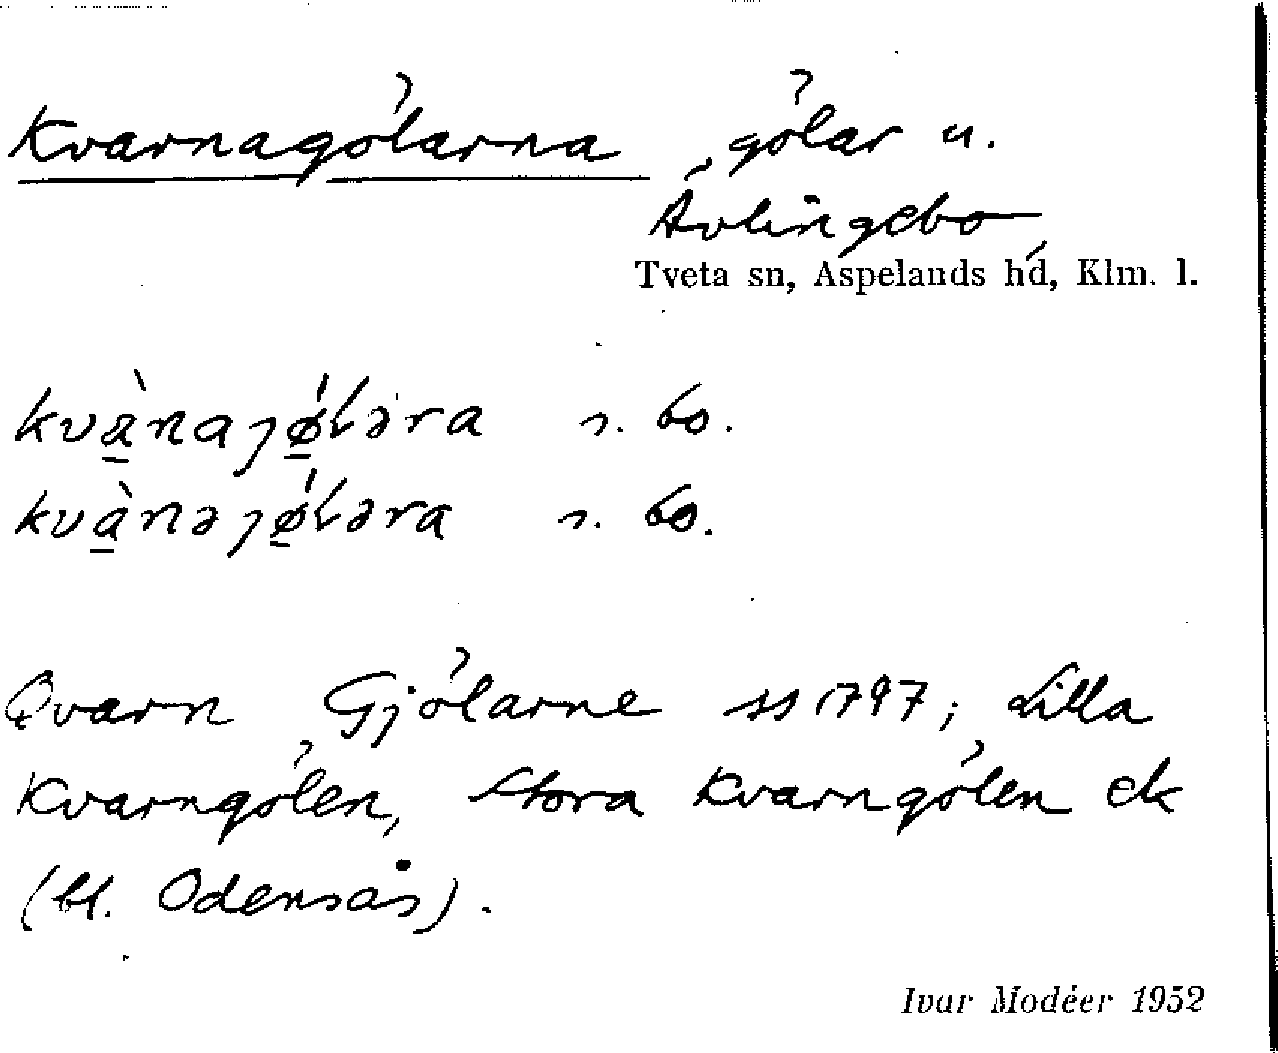 Kvarnagölarna gölar u.
Ävlingebo
Tveta sn, Aspelands hd, Klm. l.
kvànajǿlara s. bo.
kvànəjǿləra s. bo.
Qvarn Gjölarne ss 1797; Lilla
Kvarngölen, Stora Kvarngölen ek
(bl. Odensås).
Ivar Modéer 1952